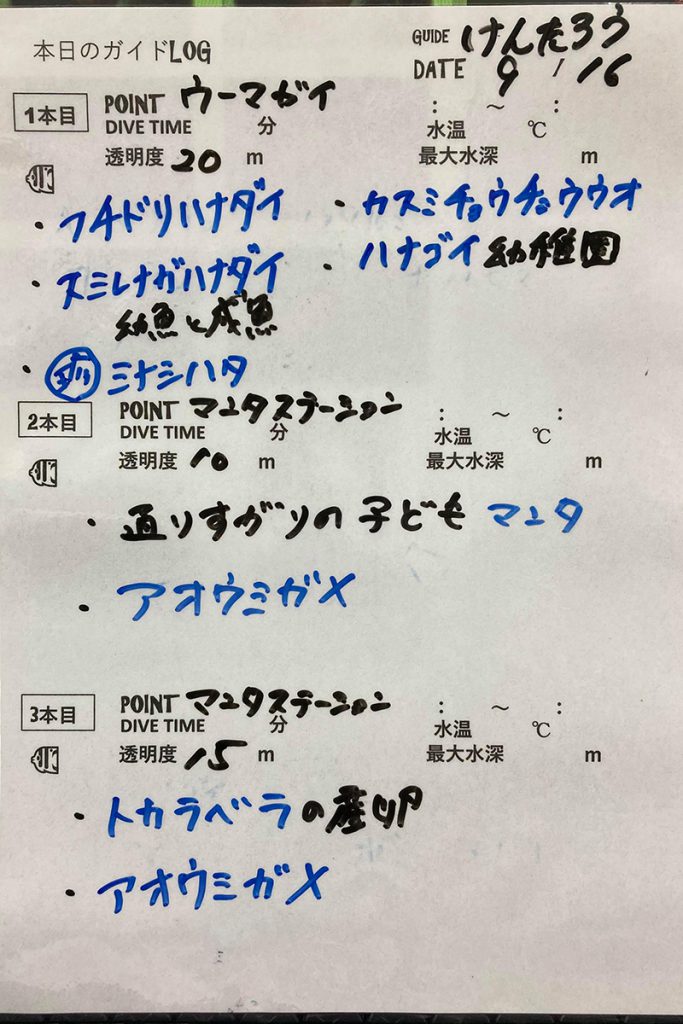 本日のガイドLOG
GUIDE けんたろう
DATE 9 / 16
1本目 POINT ウーマガイ : ～ :
DIVE TIME 分 水温 ℃
透明度 20 m 最大水深 m
・フチドリハナダイ ・カスミチョウチョウウオ
・スミレナガハナダイ ・ハナゴイ 幼稚園
幼魚と成魚
・ ミナミハタ
2本目 POINT マンタステーション : ～ :
DIVE TIME 分 水温 ℃
透明度 10 m 最大水深 m
・通りすがりの子どもマンタ
・アオウミガメ
3本目 POINT マンタステーション : ～ :
DIVE TIME 分 水温 ℃
透明度 15 m 最大水深 m
・トカラベラの産卵
・アオウミガメ